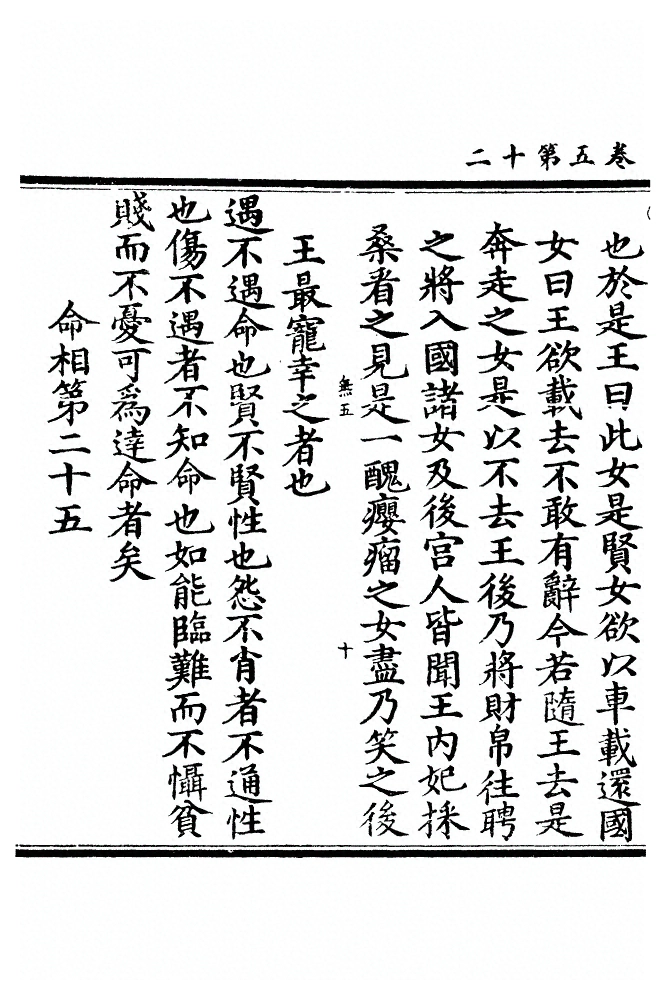 卷五第十二
也於是王曰此女是賢女欲以車載還國
女曰王欲載去不敢有辭今若隨王去是
奔走之女是以不去王後乃將財帛往聘
之將入國諸女及後宮人皆聞王內妃採
桑者之見是一醜癭瘤之女盡乃笑之後
無五 十
王最寵幸之者也
遇不遇命也賢不賢性也怨不肖者不通性
也傷不遇者不知命也如能臨難而不懾貧
賤而不憂可為達命者矣
命相第二十五